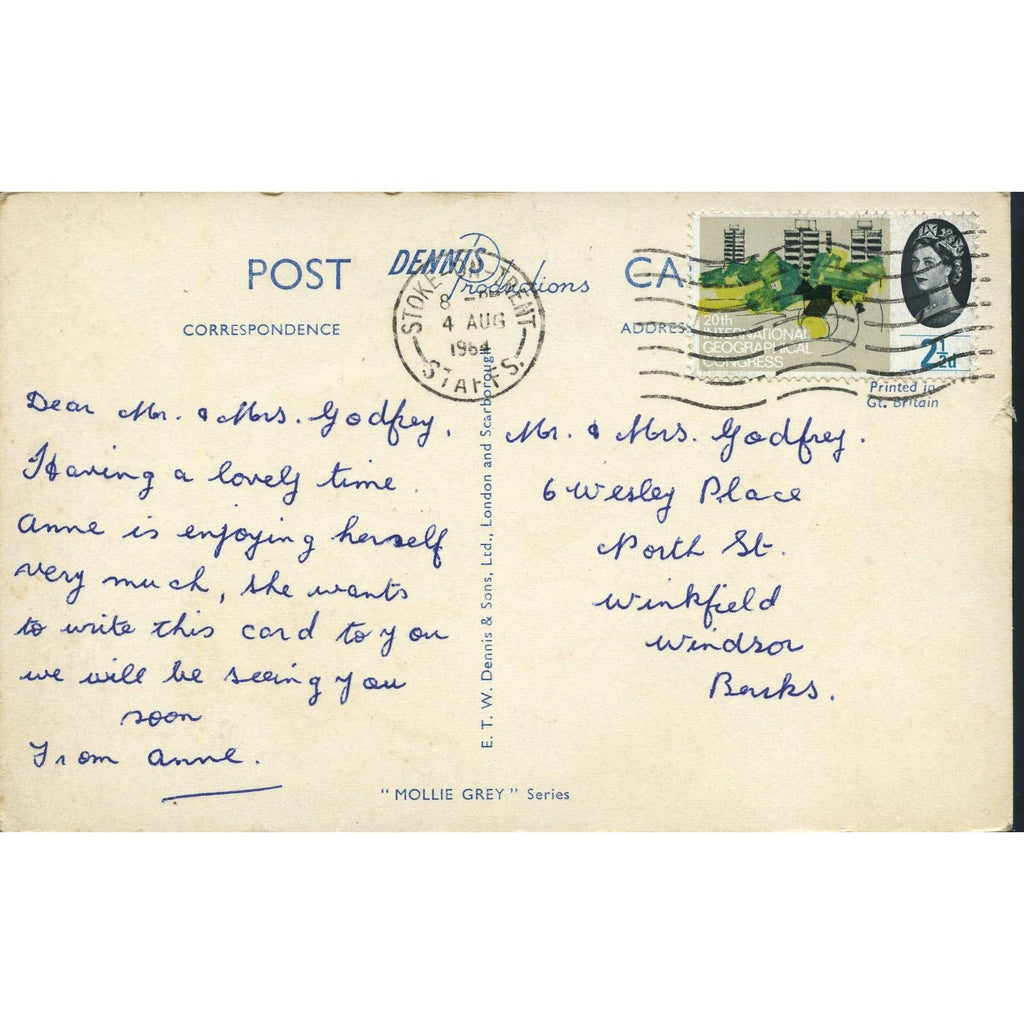 POST CA
DENNIS
Productions
CORRESPONDENCE
ADDRESS
STOKE-ON-TRENT
8 - PM
4 AUG
1964
STAFFS.
20th
INTERNATIONAL
GEOGRAPHICAL
CONGRESS
2½d
Printed in
Gt. Britain
Dear Mr. & Mrs. Godfrey,
Having a lovely time.
Anne is enjoying herself
very much, she wants
to write this card to you
we will be seeing you
soon
From Anne.
E. T. W. Dennis & Sons, Ltd., London and Scarborough
Mr. & Mrs. Godfrey.
6 Wesley Place
North St.
Winkfield
Windsor
Berks.
"MOLLIE GREY" Series